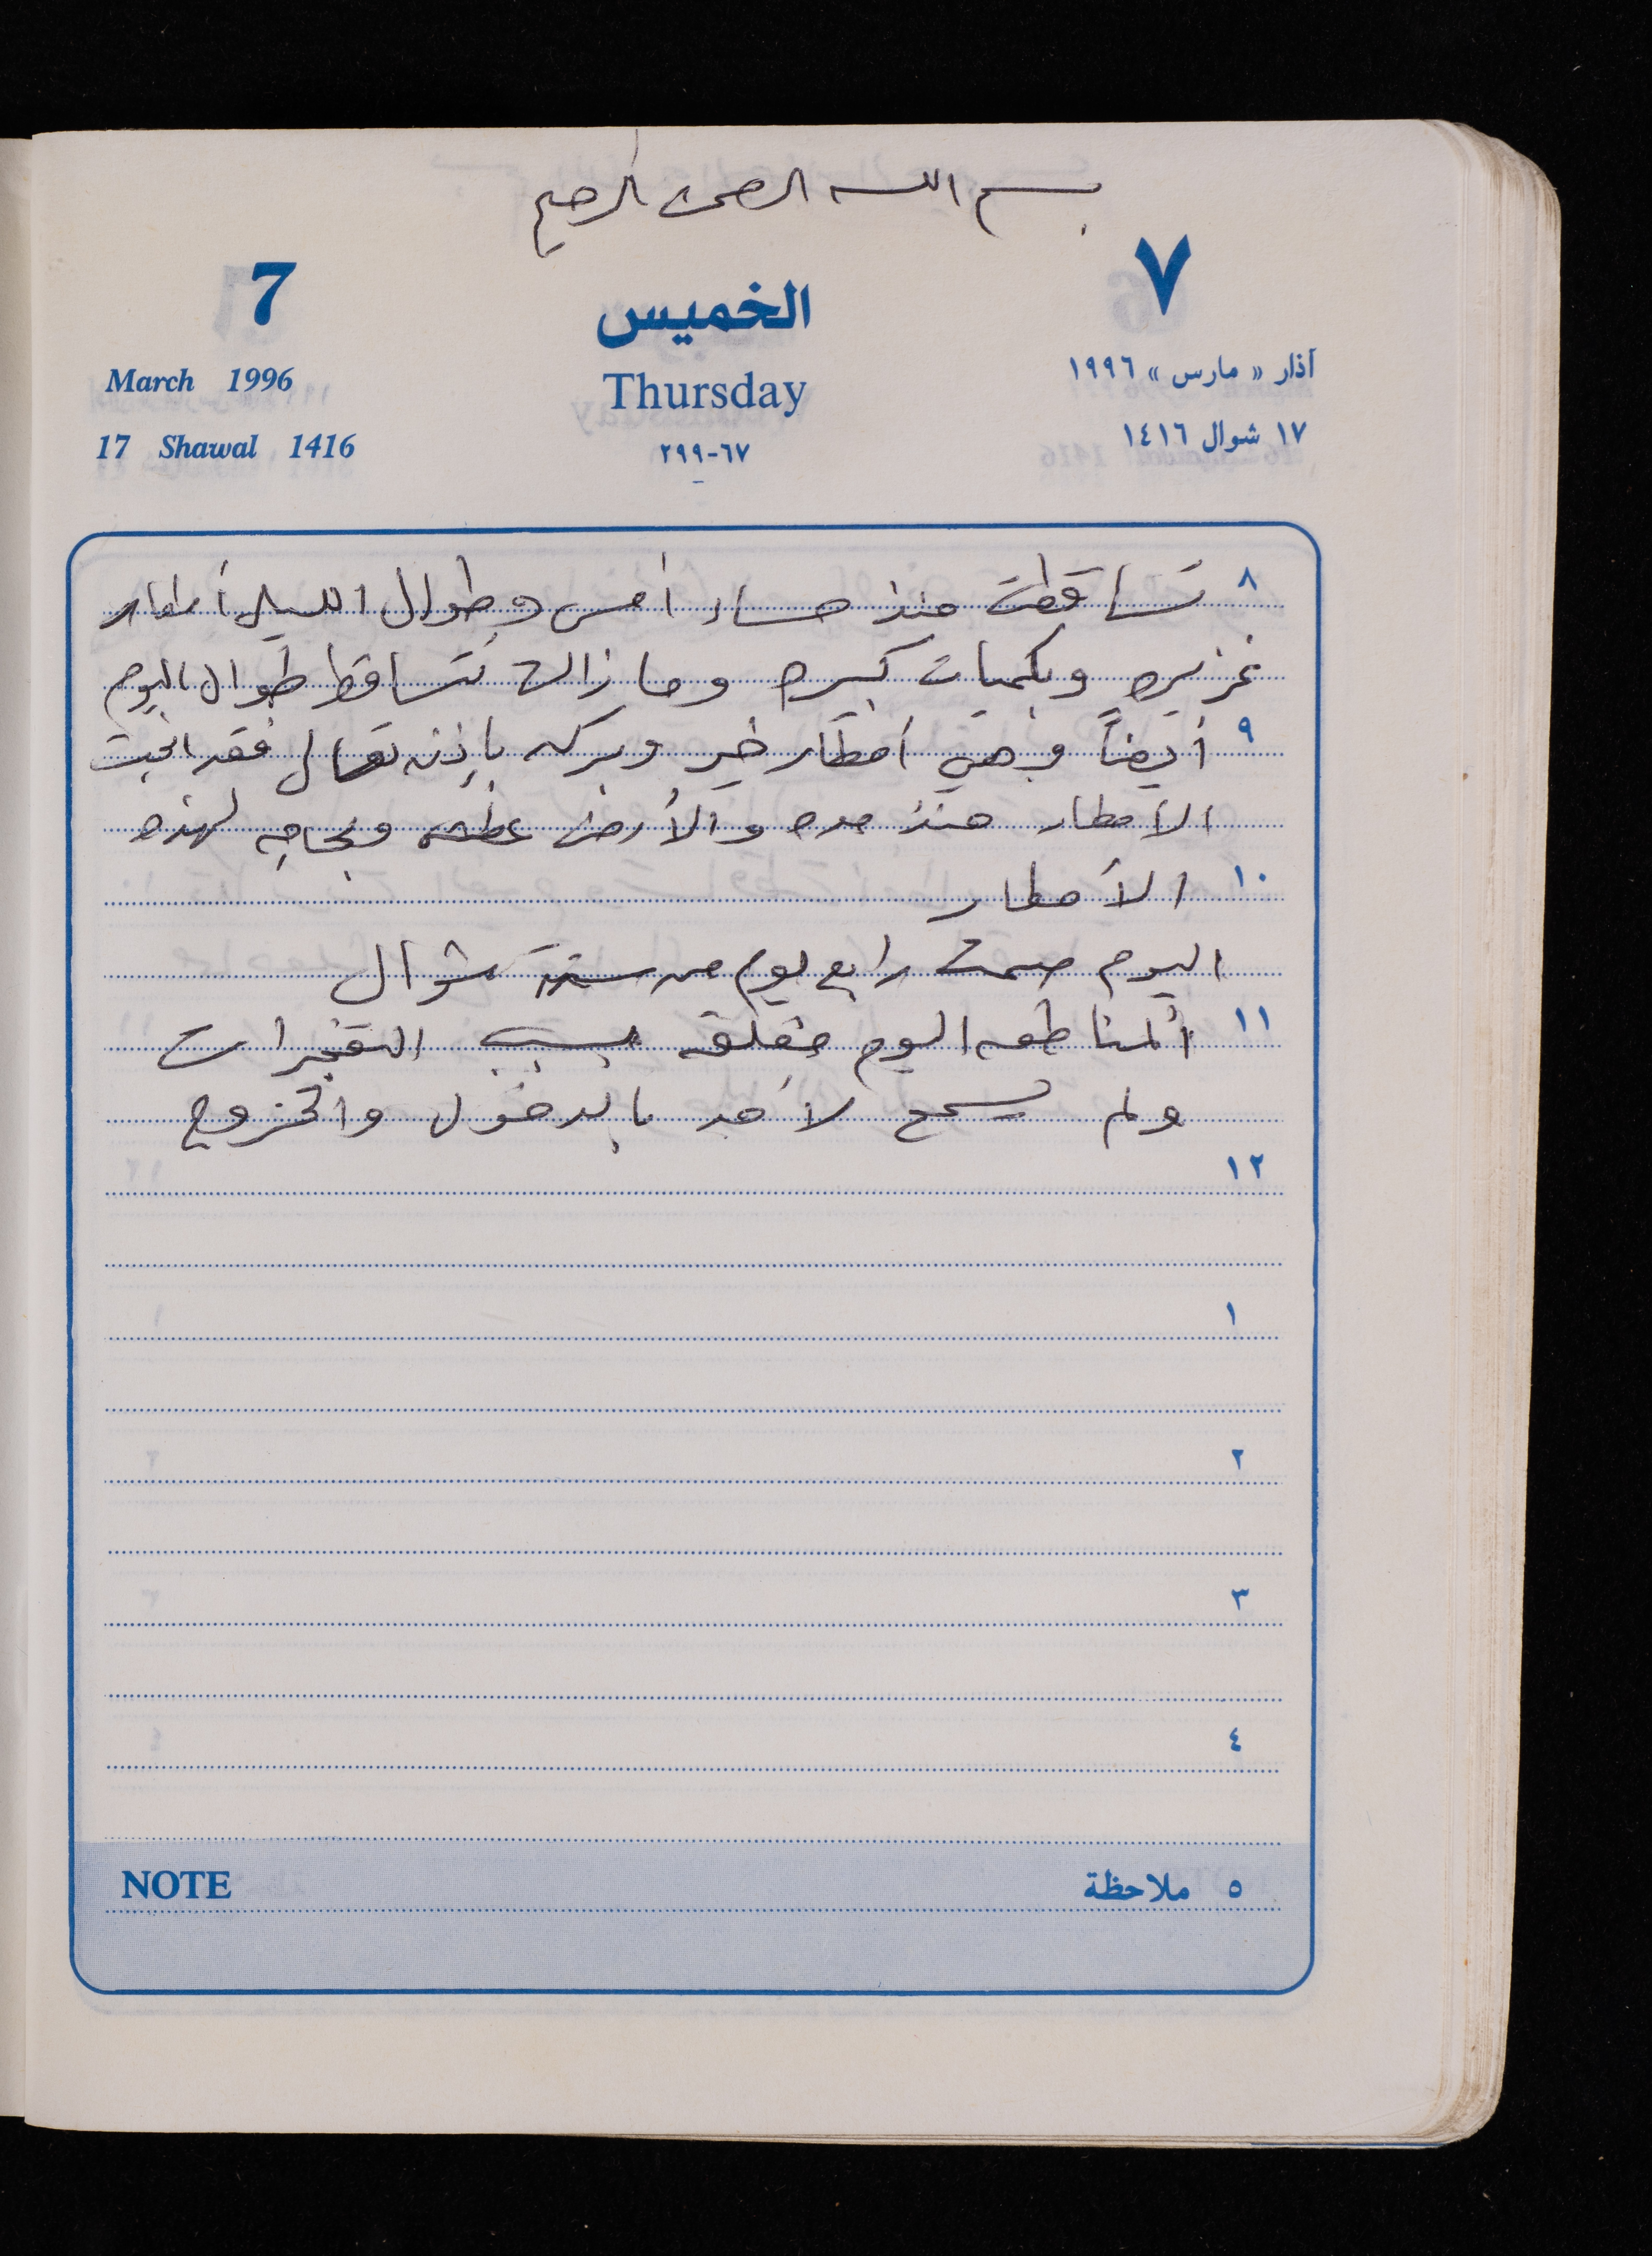 بسم الله الرحمن الرحيم
7 الخميس ٧
March 1996 Thursday آذار « مارس » ١٩٩٦
17 Shawal 1416 ٦٧-٢٩٩ ١٧ شوال ١٤١٦
٨ تساقطت منذ مساء أمس وطوال الليل أمطار
غزيره وبكميات كبيره وما زالت تتساقط طوال اليوم
٩ أيضاً وهي أمطار خير وبركه بإذنه تعالى فقد انحبست
الأمطار منذ مده والأرض عطشه وبحاجه لهذه
١٠ الأمطار
اليوم صمت رابع يوم من ستة شوال
١١ المناطق اليوم مغلقه بسبب التفجيرات
ولم يسمح لأحد بالدخول والخروج
١٢
١
٢
٣
٤
NOTE ٥ ملاحظة